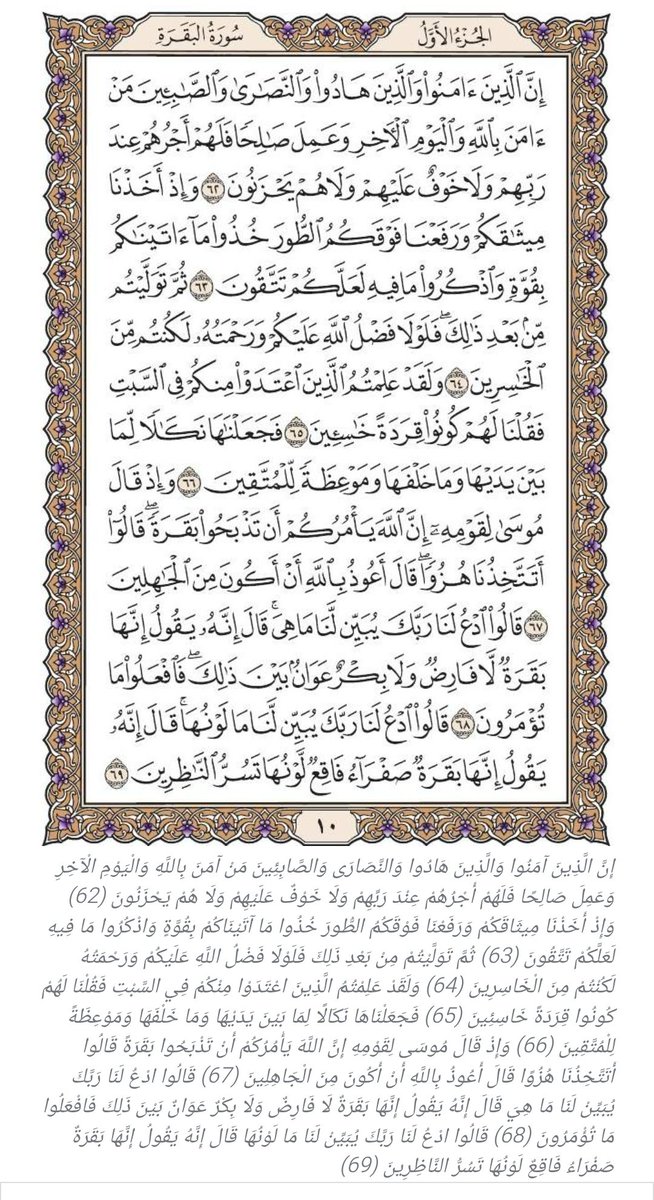 الجُزْءُ الأَوَّلُ
سُورَةُ البَقَرَةِ
إِنَّ ٱلَّذِينَ ءَامَنُواْ وَٱلَّذِينَ هَادُواْ وَٱلنَّصَٰرَىٰ وَٱلصَّٰبِـِٔينَ مَنْ
ءَامَنَ بِٱللَّهِ وَٱلْيَوْمِ ٱلْأَخِرِ وَعَمِلَ صَٰلِحًا فَلَهُمْ أَجْرُهُمْ عِندَ
رَبِّهِمْ وَلَا خَوْفٌ عَلَيْهِمْ وَلَا هُمْ يَحْزَنُونَ ٦٢ وَإِذْ أَخَذْنَا
مِيثَٰقَكُمْ وَرَفَعْنَا فَوْقَكُمُ ٱلطُّورَ خُذُواْ مَآ ءَاتَيْنَٰكُم
بِقُوَّةٍ وَٱذْكُرُواْ مَا فِيهِ لَعَلَّكُمْ تَتَّقُونَ ٦٣ ثُمَّ تَوَلَّيْتُم
مِّنۢ بَعْدِ ذَٰلِكَۖ فَلَوْلَا فَضْلُ ٱللَّهِ عَلَيْكُمْ وَرَحْمَتُهُۥ لَكُنتُم مِّنَ
ٱلْخَٰسِرِينَ ٦٤ وَلَقَدْ عَلِمْتُمُ ٱلَّذِينَ ٱعْتَدَوْاْ مِنكُمْ فِي ٱلسَّبْتِ
فَقُلْنَا لَهُمْ كُونُواْ قِرَدَةً خَٰسِـِٔينَ ٦٥ فَجَعَلْنَٰهَا نَكَٰلًا لِّمَا
بَيْنَ يَدَيْهَا وَمَا خَلْفَهَا وَمَوْعِظَةً لِّلْمُتَّقِينَ ٦٦ وَإِذْ قَالَ
مُوسَىٰ لِقَوْمِهِۦٓ إِنَّ ٱللَّهَ يَأْمُرُكُمْ أَن تَذْبَحُواْ بَقَرَةًۖ قَالُوٓاْ
أَتَتَّخِذُنَا هُزُوًاۖ قَالَ أَعُوذُ بِٱللَّهِ أَنْ أَكُونَ مِنَ ٱلْجَٰهِلِينَ
٦٧ قَالُواْ ٱدْعُ لَنَا رَبَّكَ يُبَيِّن لَّنَا مَا هِىَۚ قَالَ إِنَّهُۥ يَقُولُ إِنَّهَا
بَقَرَةٌ لَّا فَارِضٌ وَلَا بِكْرٌ عَوَانٌۢ بَيْنَ ذَٰلِكَۖ فَٱفْعَلُواْ مَا
تُؤْمَرُونَ ٦٨ قَالُواْ ٱدْعُ لَنَا رَبَّكَ يُبَيِّن لَّنَا مَا لَوْنُهَاۚ قَالَ إِنَّهُۥ
يَقُولُ إِنَّهَا بَقَرَةٌ صَفْرَآءُ فَاقِعٌ لَّوْنُهَا تَسُرُّ ٱلنَّٰظِرِينَ ٦٩
١٠
إِنَّ الَّذِينَ آمَنُوا وَالَّذِينَ هَادُوا وَالنَّصَارَى وَالصَّابِئِينَ مَنْ آمَنَ بِاللَّهِ وَالْيَوْمِ الْآخِرِ
وَعَمِلَ صَالِحًا فَلَهُمْ أَجْرُهُمْ عِنْدَ رَبِّهِمْ وَلَا خَوْفٌ عَلَيْهِمْ وَلَا هُمْ يَحْزَنُونَ (62)
وَإِذْ أَخَذْنَا مِيثَاقَكُمْ وَرَفَعْنَا فَوْقَكُمُ الطُّورَ خُذُوا مَا آتَيْنَاكُمْ بِقُوَّةٍ وَاذْكُرُوا مَا فِيهِ
لَعَلَّكُمْ تَتَّقُونَ (63) ثُمَّ تَوَلَّيْتُمْ مِنْ بَعْدِ ذَلِكَ فَلَوْلَا فَضْلُ اللَّهِ عَلَيْكُمْ وَرَحْمَتُهُ
لَكُنْتُمْ مِنَ الْخَاسِرِينَ (64) وَلَقَدْ عَلِمْتُمُ الَّذِينَ اعْتَدَوْا مِنْكُمْ فِي السَّبْتِ فَقُلْنَا لَهُمْ
كُونُوا قِرَدَةً خَاسِئِينَ (65) فَجَعَلْنَاهَا نَكَالًا لِمَا بَيْنَ يَدَيْهَا وَمَا خَلْفَهَا وَمَوْعِظَةً
لِلْمُتَّقِينَ (66) وَإِذْ قَالَ مُوسَى لِقَوْمِهِ إِنَّ اللَّهَ يَأْمُرُكُمْ أَنْ تَذْبَحُوا بَقَرَةً قَالُوا
أَتَتَّخِذُنَا هُزُوًا قَالَ أَعُوذُ بِاللَّهِ أَنْ أَكُونَ مِنَ الْجَاهِلِينَ (67) قَالُوا ادْعُ لَنَا رَبَّكَ
يُبَيِّنْ لَنَا مَا هِيَ قَالَ إِنَّهُ يَقُولُ إِنَّهَا بَقَرَةٌ لَا فَارِضٌ وَلَا بِكْرٌ عَوَانٌ بَيْنَ ذَلِكَ فَافْعَلُوا
مَا تُؤْمَرُونَ (68) قَالُوا ادْعُ لَنَا رَبَّكَ يُبَيِّنْ لَنَا مَا لَوْنُهَا قَالَ إِنَّهُ يَقُولُ إِنَّهَا بَقَرَةٌ
صَفْرَاءُ فَاقِعٌ لَوْنُهَا تَسُرُّ النَّاظِرِينَ (69)